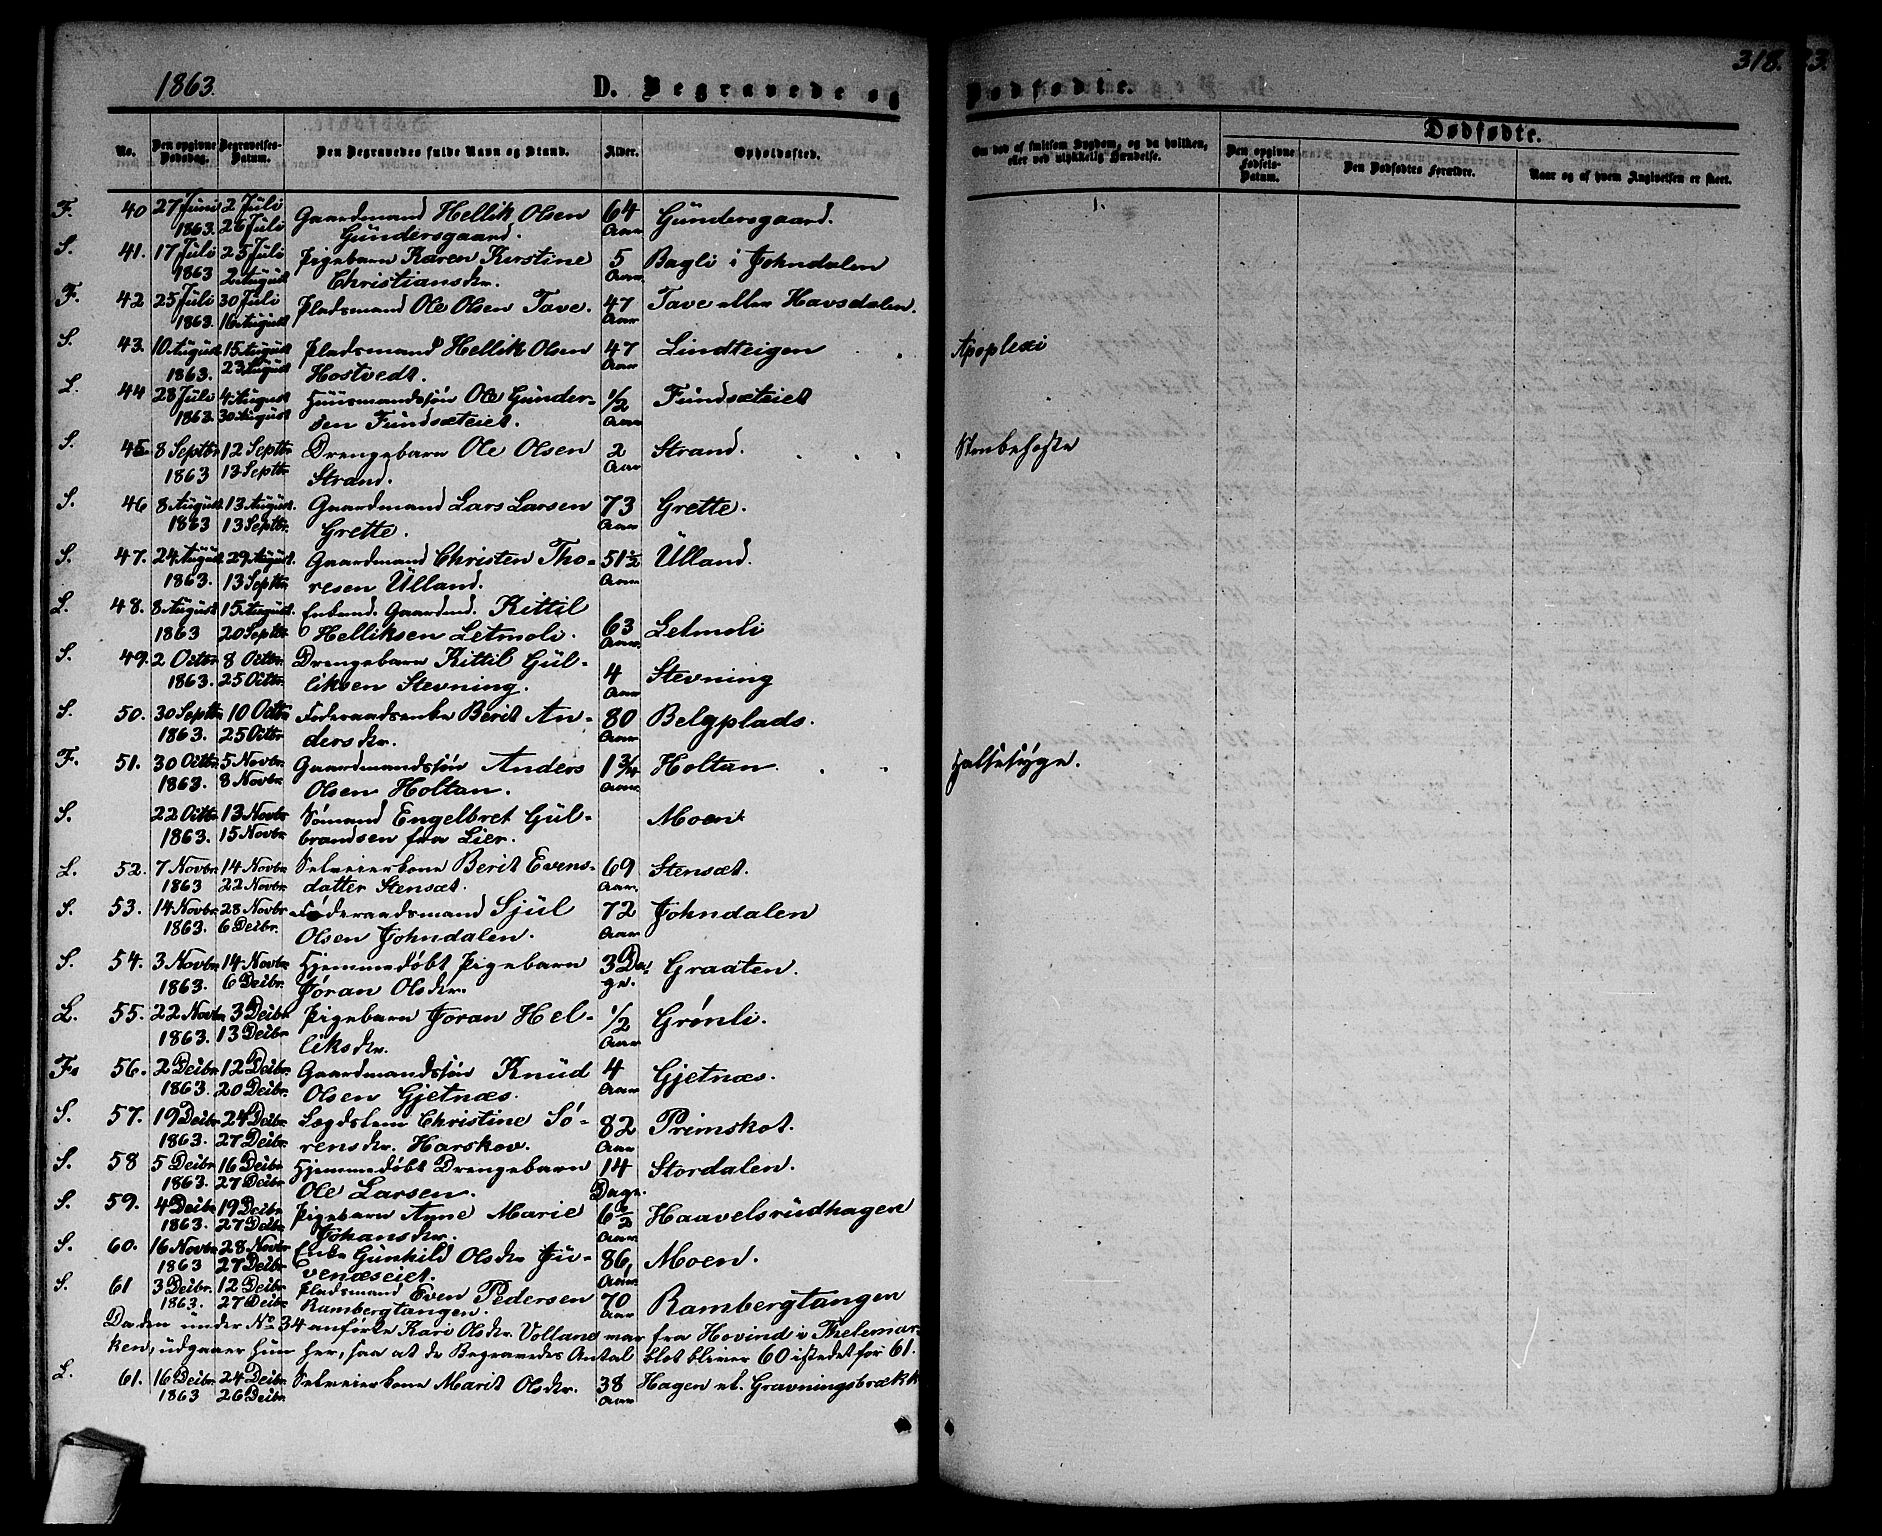 1863.
D. Begravede og
No.
Den opgivne Dødsdag.
Begravelses-Datum.
Den Begravedes fulde Navn og Stand.
Alder.
Opholdssted.
F. 40 27 Juni 2 Juli Gaardmand Hellik Olsen 64 Gündersgaard.
1863. 26 Juli Gündersgaard. Aar
S. 41. 17 Juli 25 Juli Pigebarn Karen Kirstine 5 Bagli i Johndalen
1863 2 August Christiansdr. Aar
F. 42 25 Juli 30 Juli Pladsmand Ole Olsen Tave. 47 Tave eller Havsdalen.
1863. 16 August Aar
S. 43. 10 August 15 August Pladsmand Hellik Olsen 47 Lindteigen
1863. 23 August Hostvedt. Aar
L. 44 28 Juli 4 August Huusmandssøn Ole Günder- 1/2 Fundsæteiet
1863. 30 August sen Fundsæteiet. Aar
S. 45. 8 Septbr 12 Septbr Drengebarn Ole Olsen 2 Strand.
1863 13 Septbr Strand. Aar
S. 46 8 August 13 August. Gaardmand Lars Larsen 73 Grette.
1863 13 Septbr. Grette. Aar
S. 47. 24 August 29 August. Gaardmand Christen Tho- 51 1/2 Ülland.
1863. 13 Septbr resen Ülland. Aar
L. 48. 8 August 15 August. Enkemd. Gaardmd. Kittil
1863 20 Septbr. Helliksen Letmoli. 63 Letmoli
Aar.
S. 49. 2 Octbr. 8 Octbr. Drengebarn Kittil Gül-
1863. 25 Octbr. liksen Stevning. 4 Stevning
Aar
S. 50. 30 Septbr 10 Octbr Føderaadsenke Berit An- 80 Belgplads.
1863. 25 Octbr. dersdr. Aar
F. 51. 30 Octbr. 5 Novbr. Gaardmandssøn Anders 1 3/4 Holtan.
1863. 8 Novbr. Olsen Holtan. Aar.
S. 22 Octbr. 13 Novbr Sømand Engelbret Gül- Moen
1863. 15 Novbr. brandsen fra Lier.
L. 52. 7 Novbr. 14 Novbr Selveierkone Berit Evens- 69 Stensæt.
1863 22 Novbr. datter Stensæt. Aar.
S. 53. 14 Novbr. 28 Novbr Føderaadsmand Sjül 72 Johndalen
1863. 6 Decbr. Olsen Johndalen. Aar.
S. 54. 3 Novbr 14 Novbr Hjemmedøbt Pigebarn 3 Da- Graaten.
1863. 6 Decbr. Jøran Olsdr. ge.
L. 55. 22 Novbr. 3 Decbr Pigebarn Joran Hel- 1/2 Grønli.
1863. 13 Decbr liksdr. Aar
F. 56. 2 Decbr. 12 Decbr. Gaardmandssøn Knüd 4 Gjetnæs.
1863. 20 Decbr. Olsen Gjetnæs. Aar
S. 57. 19 Decbr 24 Decbr. Lægdslem Christine Sø- 82 Primskot.
1863. 27 Decbr. rensdr. Harskov. Aar
S. 58 5 Decbr 16 Decbr Hjemmedøbt Drengebarn 14 Stordalen.
1863. 27 Decbr. Ole Larsen. Dage.
S. 59. 4 Decbr 19 Decbr. Pigebarn Anne Marie 6 1/2 Haavelsrüdhagen
1863. 27 Decbr. Johansdr. Aar.
S. 60. 16 Novbr 28 Novbr Enke Günhild Olsdr Jü- 86, Moen.
1863 27 Decbr. venæseiet. Aar.
S. 61 3 Decbr. 12 Decbr. Pladsmand Even Pedersen 70 Rambergtangen
1863. 27 Decbr Rambergtangen. Aar
Da den under No 34 anførte Kari Olsdr. Volland var fra Hovind i Thelemar-
ken, udgaaer hun her, saa at de Begravedes Antal blot bliver 60 istedetfor 61.
L. 61. 16 Decbr. 24 Decbr. Selveierkone Marit Olsdr. 38 Hagen el. Gravningsbrækk
1863 26 Decbr. Aar
318.
Dødfødte.
Om død af smitsom Sygdom, og da hvilken, eller ved ulykkelig Hændelse.
Dødfødte.
Den opgivne Fødsels-Datum.
Den Dødfødtes Forældre.
Naar og af hvem Angivelsen er skeet.
Apoplexi
Strubehoste
Halssyge.